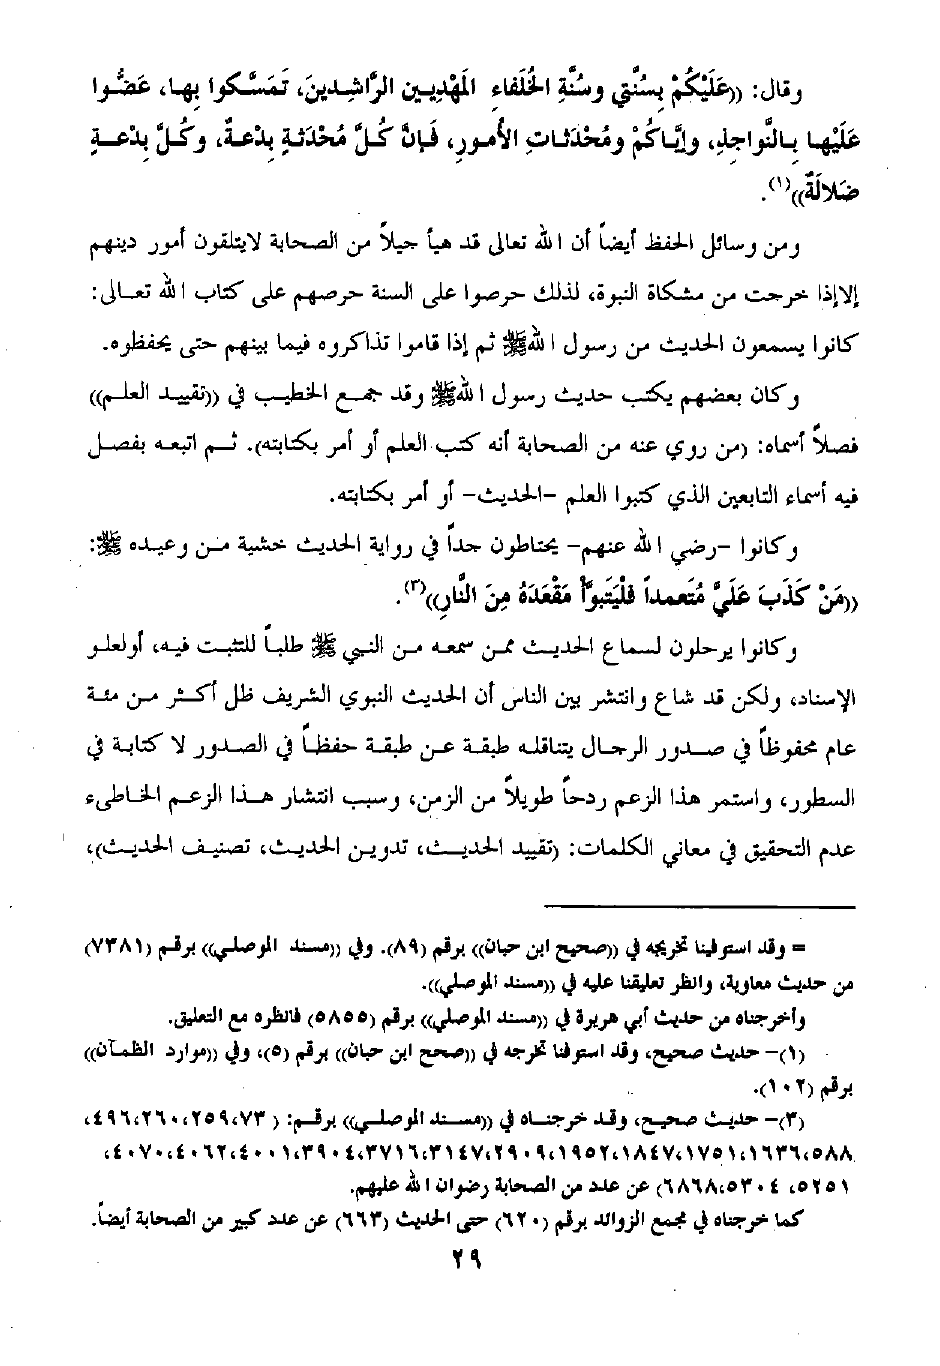 وقال: ((عَلَيْكُمْ بِسُنَّتِي وسُنَّةِ الخُلَفاءِ المَهْدِيين الرَّاشِدينَ، تَمَسَّكوا بِها، عَضُّوا
عَلَيْها بِالنَّواجِذِ، وإيَّاكُمْ ومُحْدَثاتِ الأُمورِ، فَإنَّ كُلَّ مُحْدَثَةٍ بِدْعَةٌ، وكُلَّ بِدْعَةٍ
ضَلالَةٌ))(١).
ومن وسائل الحفظ أيضاً أن الله تعالى قد هيأ جيلاً من الصحابة لايتلقون أمور دينهم
إلاإذا خرجت من مشكاة النبوة، لذلك حرصوا على السنة حرصهم على كتاب الله تعالى:
كانوا يسمعون الحديث من رسول اللهﷺ ثم إذا قاموا تذاكروه فيما بينهم حتى يحفظوه.
وكان بعضهم يكتب حديث رسول اللهﷺ وقد جمع الخطيب في ((تقييد العلم))
فصلاً أسماه: (من روي عنه من الصحابة أنه كتب العلم أو أمر بكتابته). ثم اتبعه بفصل
فيه أسماء التابعين الذي كتبوا العلم -الحديث- أو أمر بكتابته.
وكانوا -رضي الله عنهم- يحتاطون جداً في رواية الحديث خشية من وعيده ﷺ:
((مَنْ كَذَبَ عَلَيَّ مُتَعمداً فَلْيَتَبوَّأ مَقْعَدَهُ مِنَ النَّارِ))(٣).
وكانوا يرحلون لسماع الحديث ممن سمعه من النبي ﷺ طلباً للتثبت فيه، أولعلو
الإسناد، ولكن قد شاع وانتشر بين الناس أن الحديث النبوي الشريف ظل أكثر من مئة
عام محفوظاً في صدور الرجال يتناقله طبقة عن طبقة حفظاً في الصدور لا كتابة في
السطور، واستمر هذا الزعم ردحاً طويلاً من الزمن، وسبب انتشار هذا الزعم الخاطىء
عدم التحقيق في معاني الكلمات: (تقييد الحديث، تدوين الحديث، تصنيف الحديث)،
= وقد استوفينا تخريجه في ((صحيح ابن حبان)) برقم (٨٩). وفي ((مسند الموصلي)) برقم (٧٣٨١)
من حديث معاوية، وانظر تعليقنا عليه في ((مسند الموصلي)).
وأخرجناه من حديث أبي هريرة في ((مسند الموصلي)) برقم (٥٨٥٥) فانظره مع التعليق.
(١)- حديث صحيح، وقد استوفنا تخرجه في ((صحح ابن حبان)) برقم (٥)، وفي ((موارد الظمآن))
برقم (١٠٢).
(٣)- حديث صحيح، وقد خرجناه في ((مسند الموصلي)) برقم: ( ٧٣،٢٥٩،٢٦٠،٤٩٦،
٥٨٨،١٦٣٦،١٧٥١،١٨٤٧،١٩٥٢،٢٩٠٩،٣١٤٧،٣٧١٦،٣٩٠٤،٤٠٠١،٤٠٦٢،٤٠٧٠،
٥٢٥١، ٥٣٠٤،٦٨٦٨) عن عدد من الصحابة رضوان الله عليهم.
كما خرجناه في مجمع الزوائد برقم (٦٢٠) حتى الحديث (٦٦٣) عن عدد كبير من الصحابة أيضاً.
٢٩